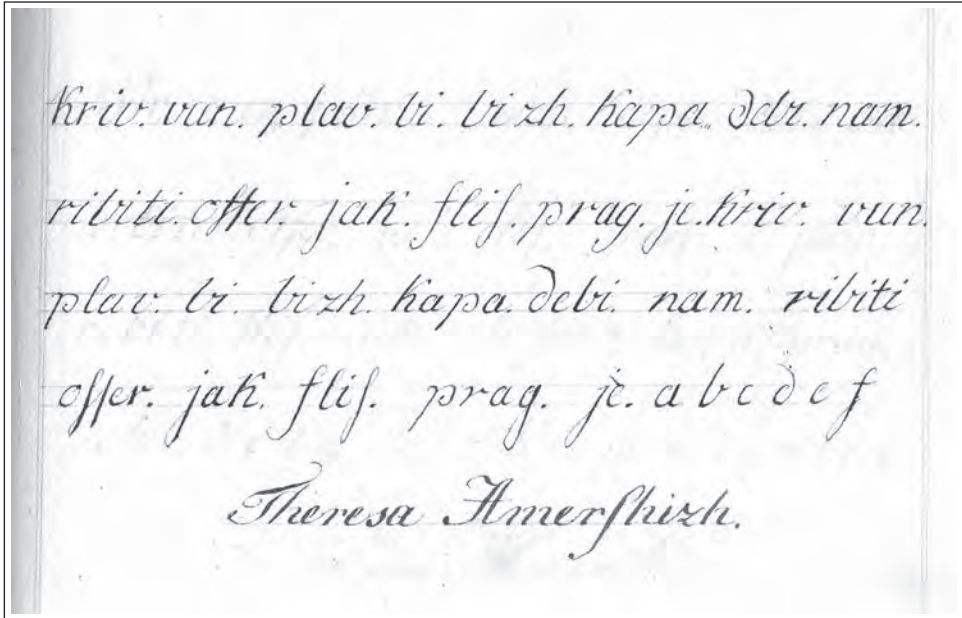 kriv. vun. plav. bi. bizh. kapa. debi. nam.
ribiti. oſſer. jak. fliſ. prag. je. kriv. vun.
plav. bi. bizh. kapa. debi. nam. ribiti
oſſer. jak. fliſ. prag. je. a b c d e f
Theresa Amerſhizh.